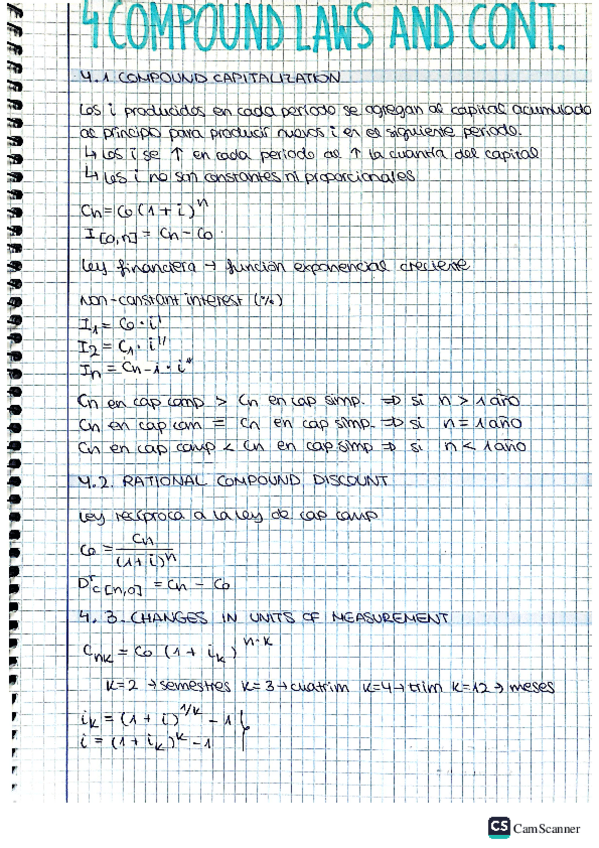 4 COMPOUND LAWS AND CONT.
4.1 COMPOUND CAPITALIZATION
Los i producidos en cada período se agregan al capital acumulado
al principio para producir nuevos i en el siguiente periodo.
↳ Los i se ↑ en cada periodo al ↑ la cuantía del capital
↳ Los i no son constantes ni proporcionales
Cn = Co (1 + i)^n
I[0,n] = Cn - Co
Ley financiera → función exponencial creciente
Non-constant interest (%)
I1 = Co · i'
I2 = C1 · i''
In = Cn-1 · i^n
Cn en cap comp > Cn en cap simp. ⇒ si n > 1 año
Cn en cap com = Cn en cap simp. ⇒ si n = 1 año
Cn en cap comp < Cn en cap simp ⇒ si n < 1 año
4.2. RATIONAL COMPOUND DISCOUNT
Ley recíproca a la ley de cap comp
Co = Cn / (1 + i)^n
D^r c[n,0] = Cn - Co
4.3. CHANGES IN UNITS OF MEASUREMENT
Cnk = Co (1 + ik)^n·k
K=2 → semestres K=3 → cuatrim K=4 → trim K=12 → meses
ik = (1 + i)^1/k - 1
i = (1 + ik)^k - 1
CS CamScanner